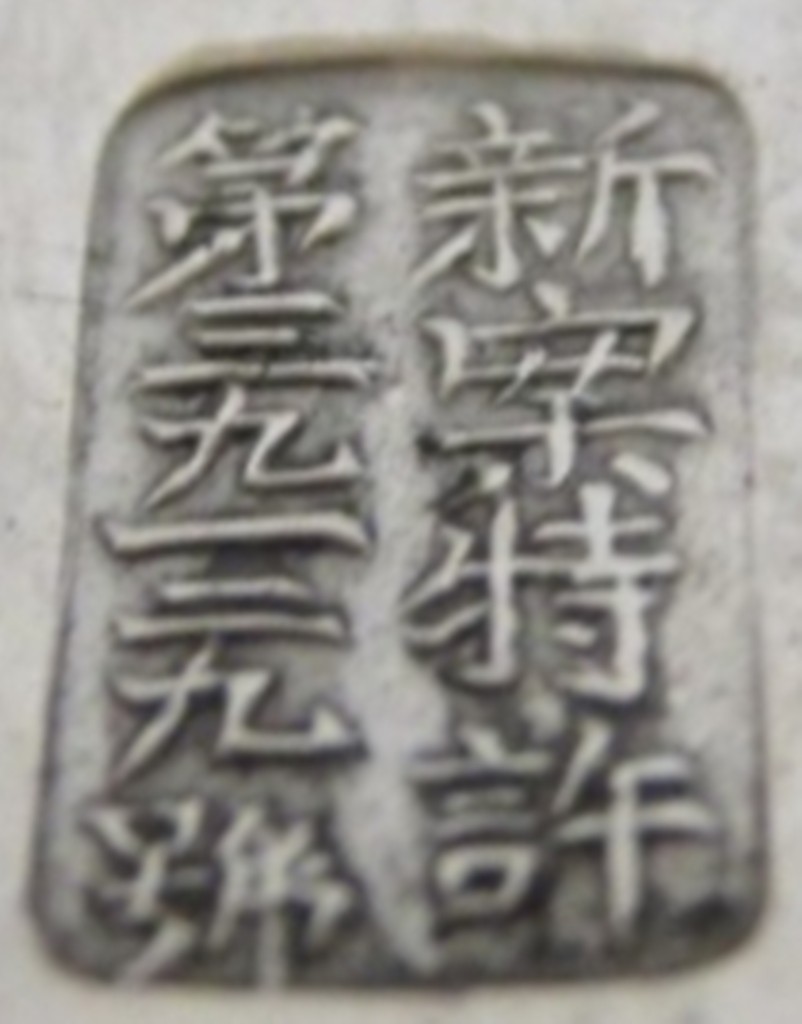 新案特許
第三九一二九號